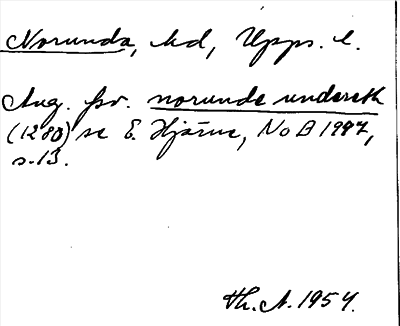 Norunda, hd, Upps. l.
Ang. fsv. norunde undareth
(1280) se E. Hjärne, NoB 1947,
s. 13.
Th. A. 1954.